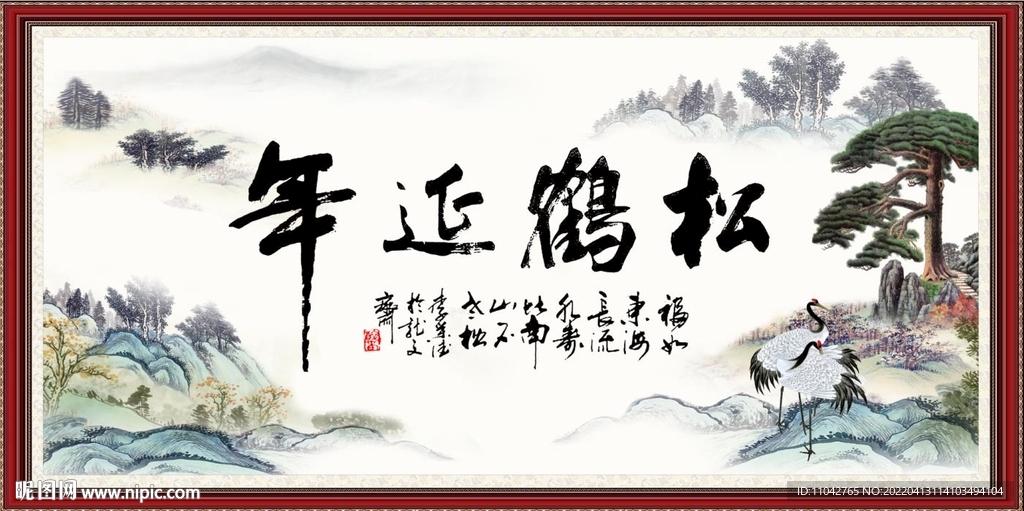 松鶴延年
福如
東海
長流
水壽
比南
山不
老松
於龍文
齋
昵图网 www.nipic.com
ID:11042765 NO:20220413114103494104